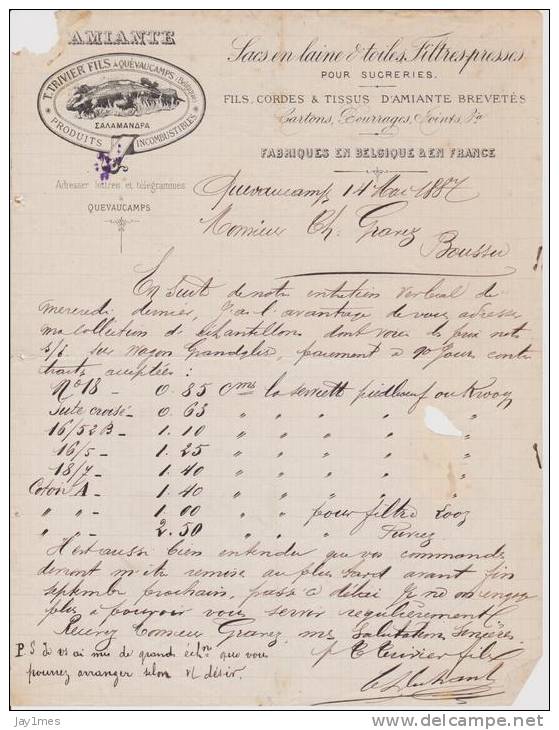 AMIANTE
T. TRIVIER FILS à QUÉVAUCAMPS (Belgique)
ΣΑΛΑΜΑΝΔΡΑ
PRODUITS INCOMBUSTIBLES
Adresser lettres et télégrammes
à
QUEVAUCAMPS
Sacs en laine & toiles Filtres-presses
POUR SUCRERIES.
FILS, CORDES & TISSUS D'AMIANTE BREVETÉS
Cartons, Bourrages, Joints, &a
FABRIQUES EN BELGIQUE & EN FRANCE
Quevaucamps 14 Mai 1887
Monsieur Ch. Gravez
Boussu
En suit de notre entretien verbal de
mercredi dernier, J'ai l'avantage de vous adresser
ma collection d'échantillons dont vous le prix note
s/f sur wagon Grandglise, paiement à 90 Jours contre
traites acceptées :
No 18 - 0.85 Cmes la serviette piedboeuf ou Krooz
Jute croisé - 0.63 " " " " "
16/52 B - 1.10 " " " " "
16/5 - 1.25 " " " " "
18/7 - 1.40 " " " " "
Coton A - 1.40 " " " " "
" " - 1.00 " " pour filtre Looz
" - 2.50 " " "
Il est aussi bien entendu que vos commandes
devront m'être remise au plus tard avant fin
septembre prochain, passé ce délai Je ne m'engage
plus à pouvoir vous servir regulièrement
Recevez Monsieur Gravez, mes Salutations Sincères
p T Trivier fils
P.S Je vs ai mis de grand échons que vous
pourrez arranger selon vt désir.
jay1mes
www.delcampe.net